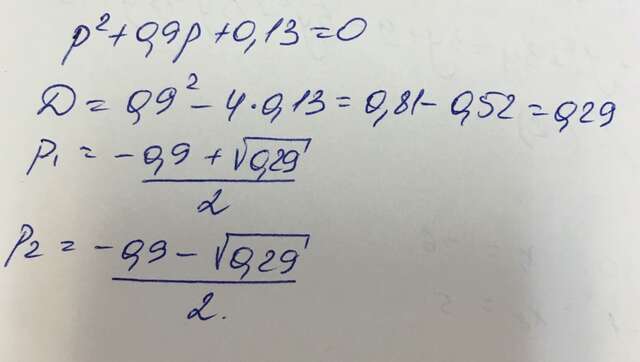 p² + 0,9p + 0,13 = 0
D = 0,9² - 4 · 0,13 = 0,81 - 0,52 = 0,29
p₁ = (-0,9 + √0,29) / 2
p₂ = (-0,9 - √0,29) / 2.